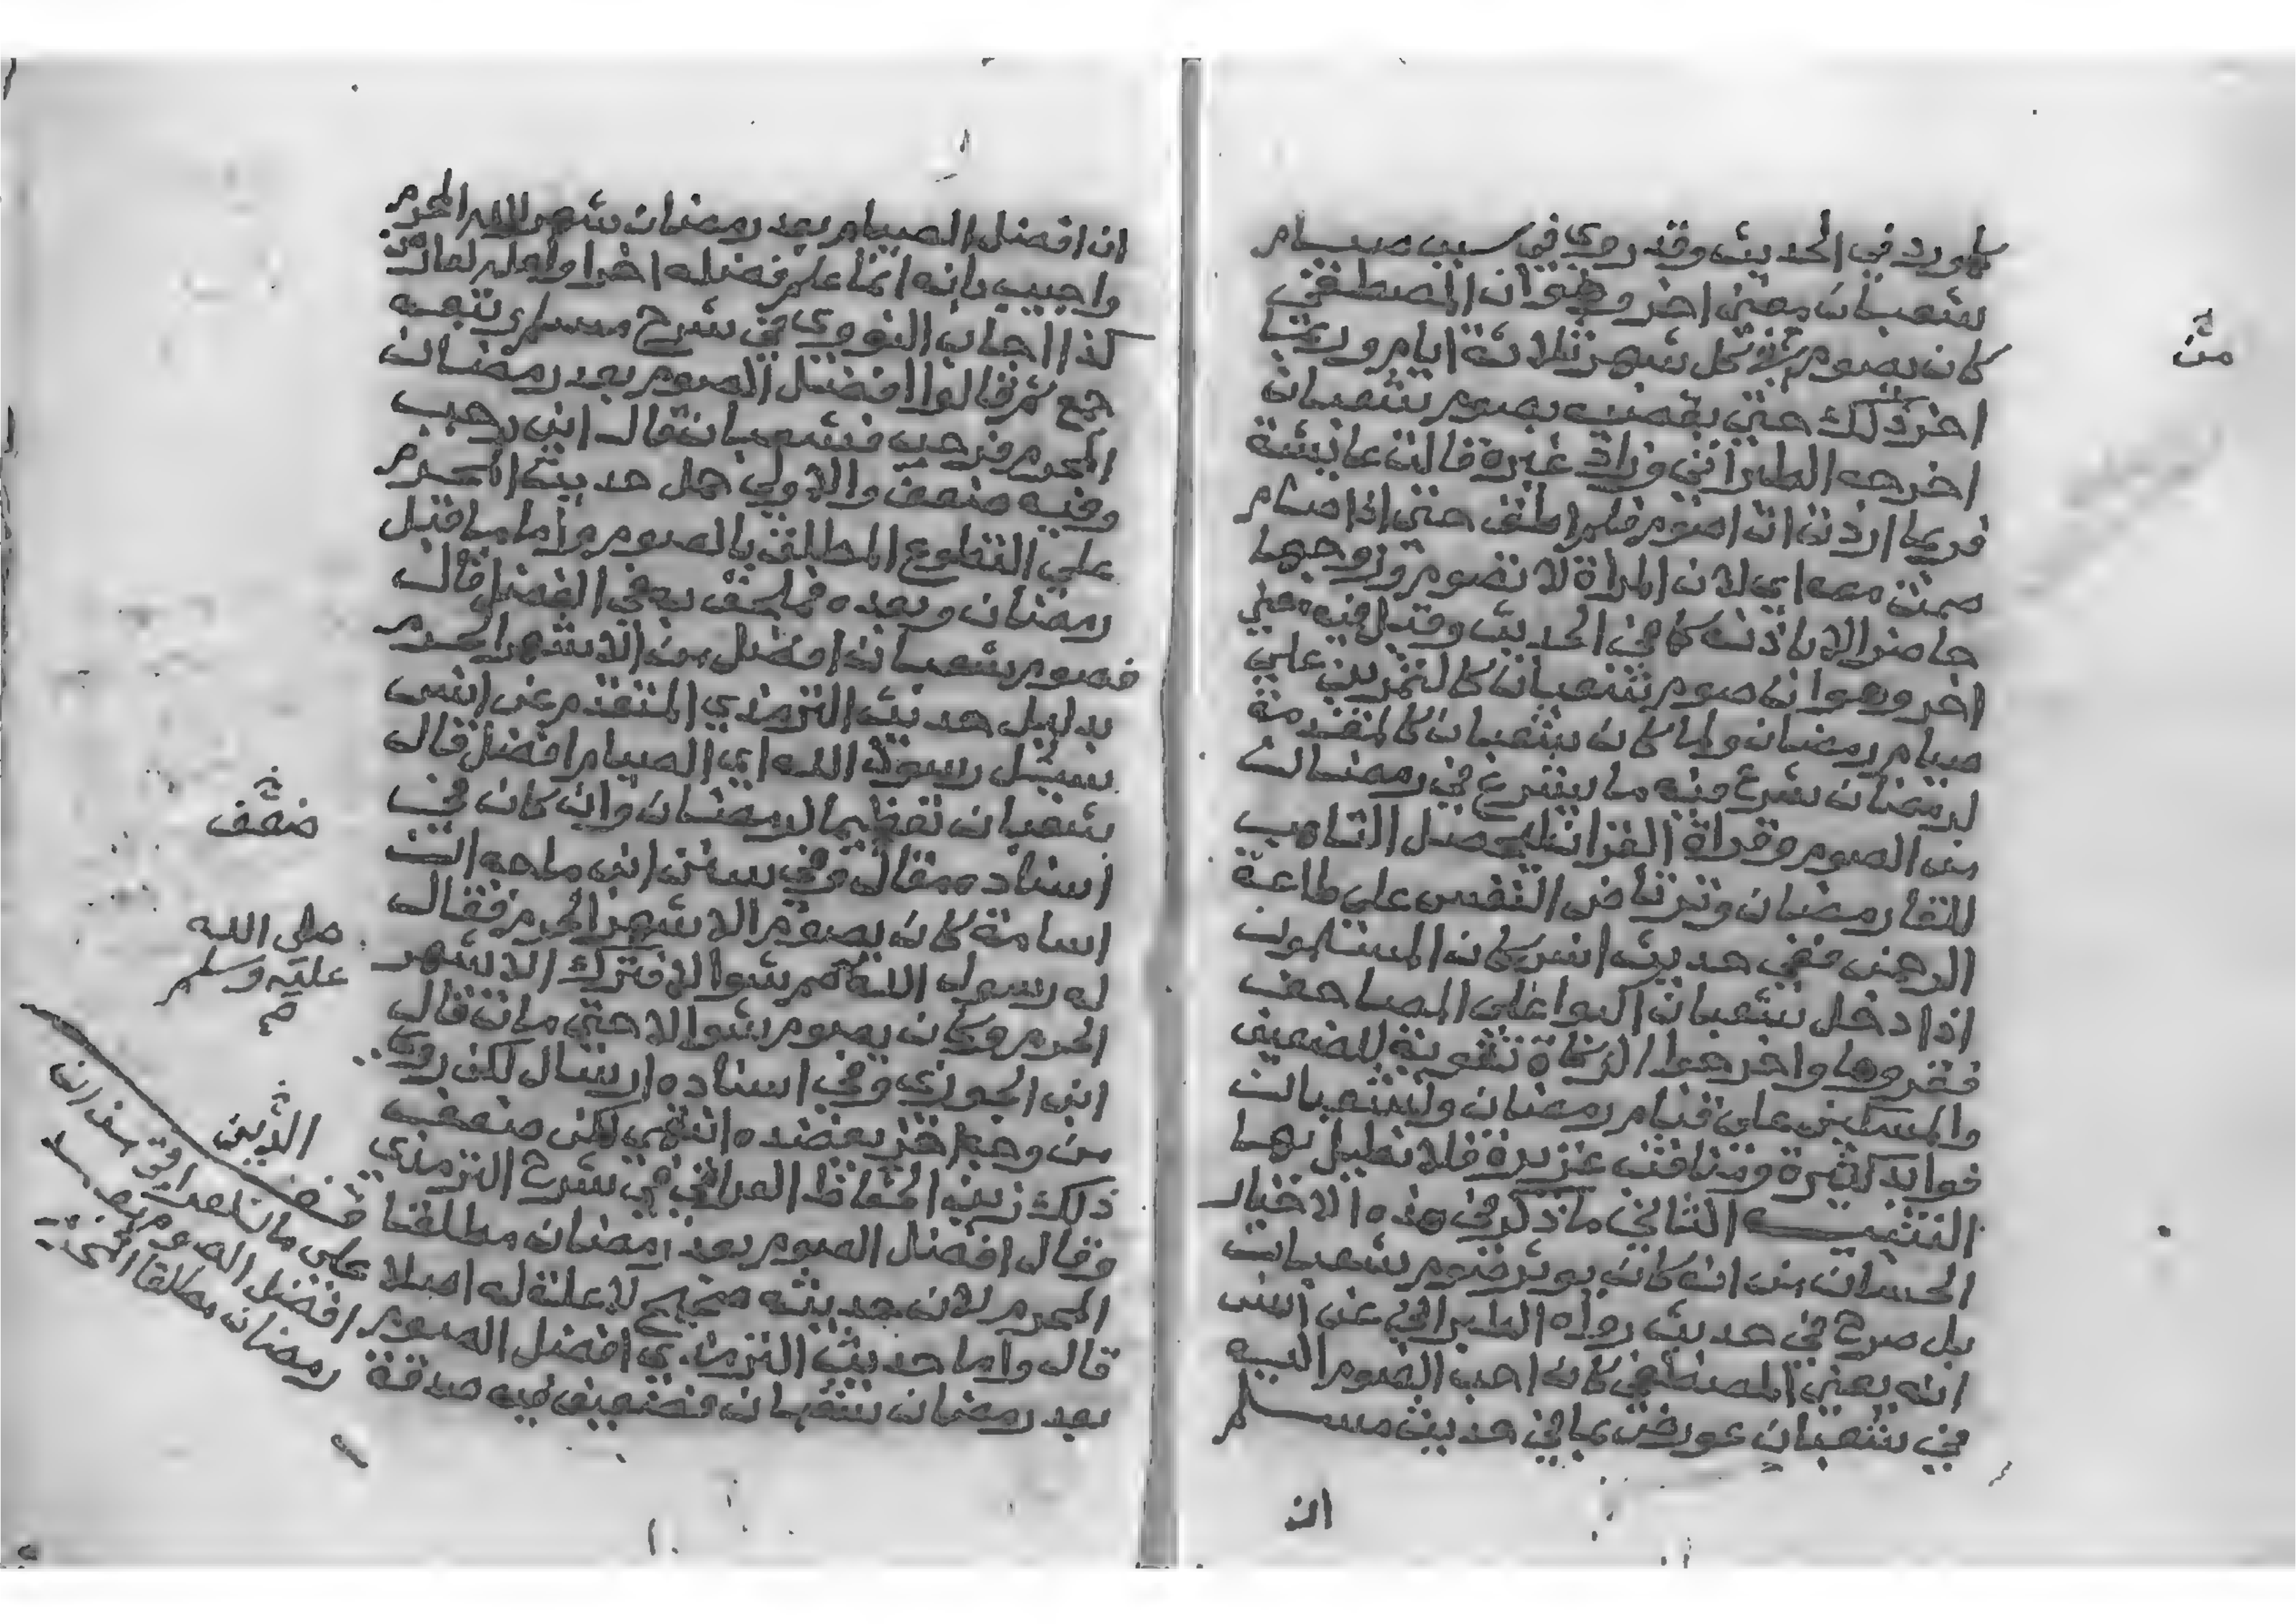 كما ورد في الحديث وقد روي في سبب صيام
شعبان معنى اخر وهو ان المصطفى
كان يصوم من كل شهر ثلاثة ايام وربما
اخر ذلك حتى يقضيه بصوم شعبان
اخرجه الطبراني وزاد غيره قالت عائشة
فربما اردت ان اصوم فلم اطق حتى اذا صام
صمت معه اي لان المراة لا تصوم وزوجها
حاضر الا باذنه كما في الحديث وقيل فيه معنى
اخر وهو ان صوم شعبان كالتمرين على
صيام رمضان ولما كان شعبان كالمقدمة
لرمضان شرع فيه ما يشرع في رمضان
من الصوم وقراة القران ليحصل التاهب
للقا رمضان وترتاض النفس على طاعة
الرحمن ففي حديث انس كان المسلمون
اذا دخل شعبان اكبوا على المصاحف
فقروها واخرجوا الزكاة تقوية للضعيف
والمسكين على قيام رمضان ولشعبان
فوايد كثيرة ومناقب غزيرة فلا نطيل بها
التنبيه الثاني ما ذكر في هذه الاخبار
الحسان من انه كان يوثر صوم شعبان
بل صرح في حديث رواه الطبراني عن انس
انه يعني المصطفى كان احب الصوم اليه
في شعبان عورض بما في حديث مسلم
ان
من
ان افضل الصيام بعد رمضان شهر الله المحرم
واجيب بانه انما علم فضله اخرا ولعله لعارض
كذا اجاب النووي في شرح مسلم وتبعه
جمع ثم قالوا افضل الصوم بعد رمضان
المحرم فرجب فشعبان قال ابن رجب
وفيه ضعف والاولى حمل حديث المحرم
على التطوع المطلق بالصوم واما ما قبل
رمضان وبعده فملحق به في الفضل قال
فصوم شعبان افضل من الاشهر الحرم
بدليل حديث الترمذي المتقدم عن انس
سئل رسول الله اي الصيام افضل قال
شعبان تعظيما لرمضان وان كان في
اسناده مقال وفي سنن ابن ماجه ان
اسامة كان يصوم الاشهر الحرم فقال
له رسول الله صم شوالا فترك الاشهر
الحرم وكان يصوم شوالا حتى مات قال
ابن الجوزي وفي اسناده ارسال لكن روي
من وجه اخر يعضده انتهى لكن ضعف
ذلك زين الحفاظ العراقي في شرح الترمذي
وقال افضل الصوم بعد رمضان مطلقا
المحرم لان حديثه صحيح لا علة له اصلا
قال واما حديث الترمذي افضل الصوم
بعد رمضان شعبان فضعيف فيه صدقة
ضعف
صلى الله
عليه وسلم
الدين
على ما
افضل الصوم بعد
رمضان مطلقا